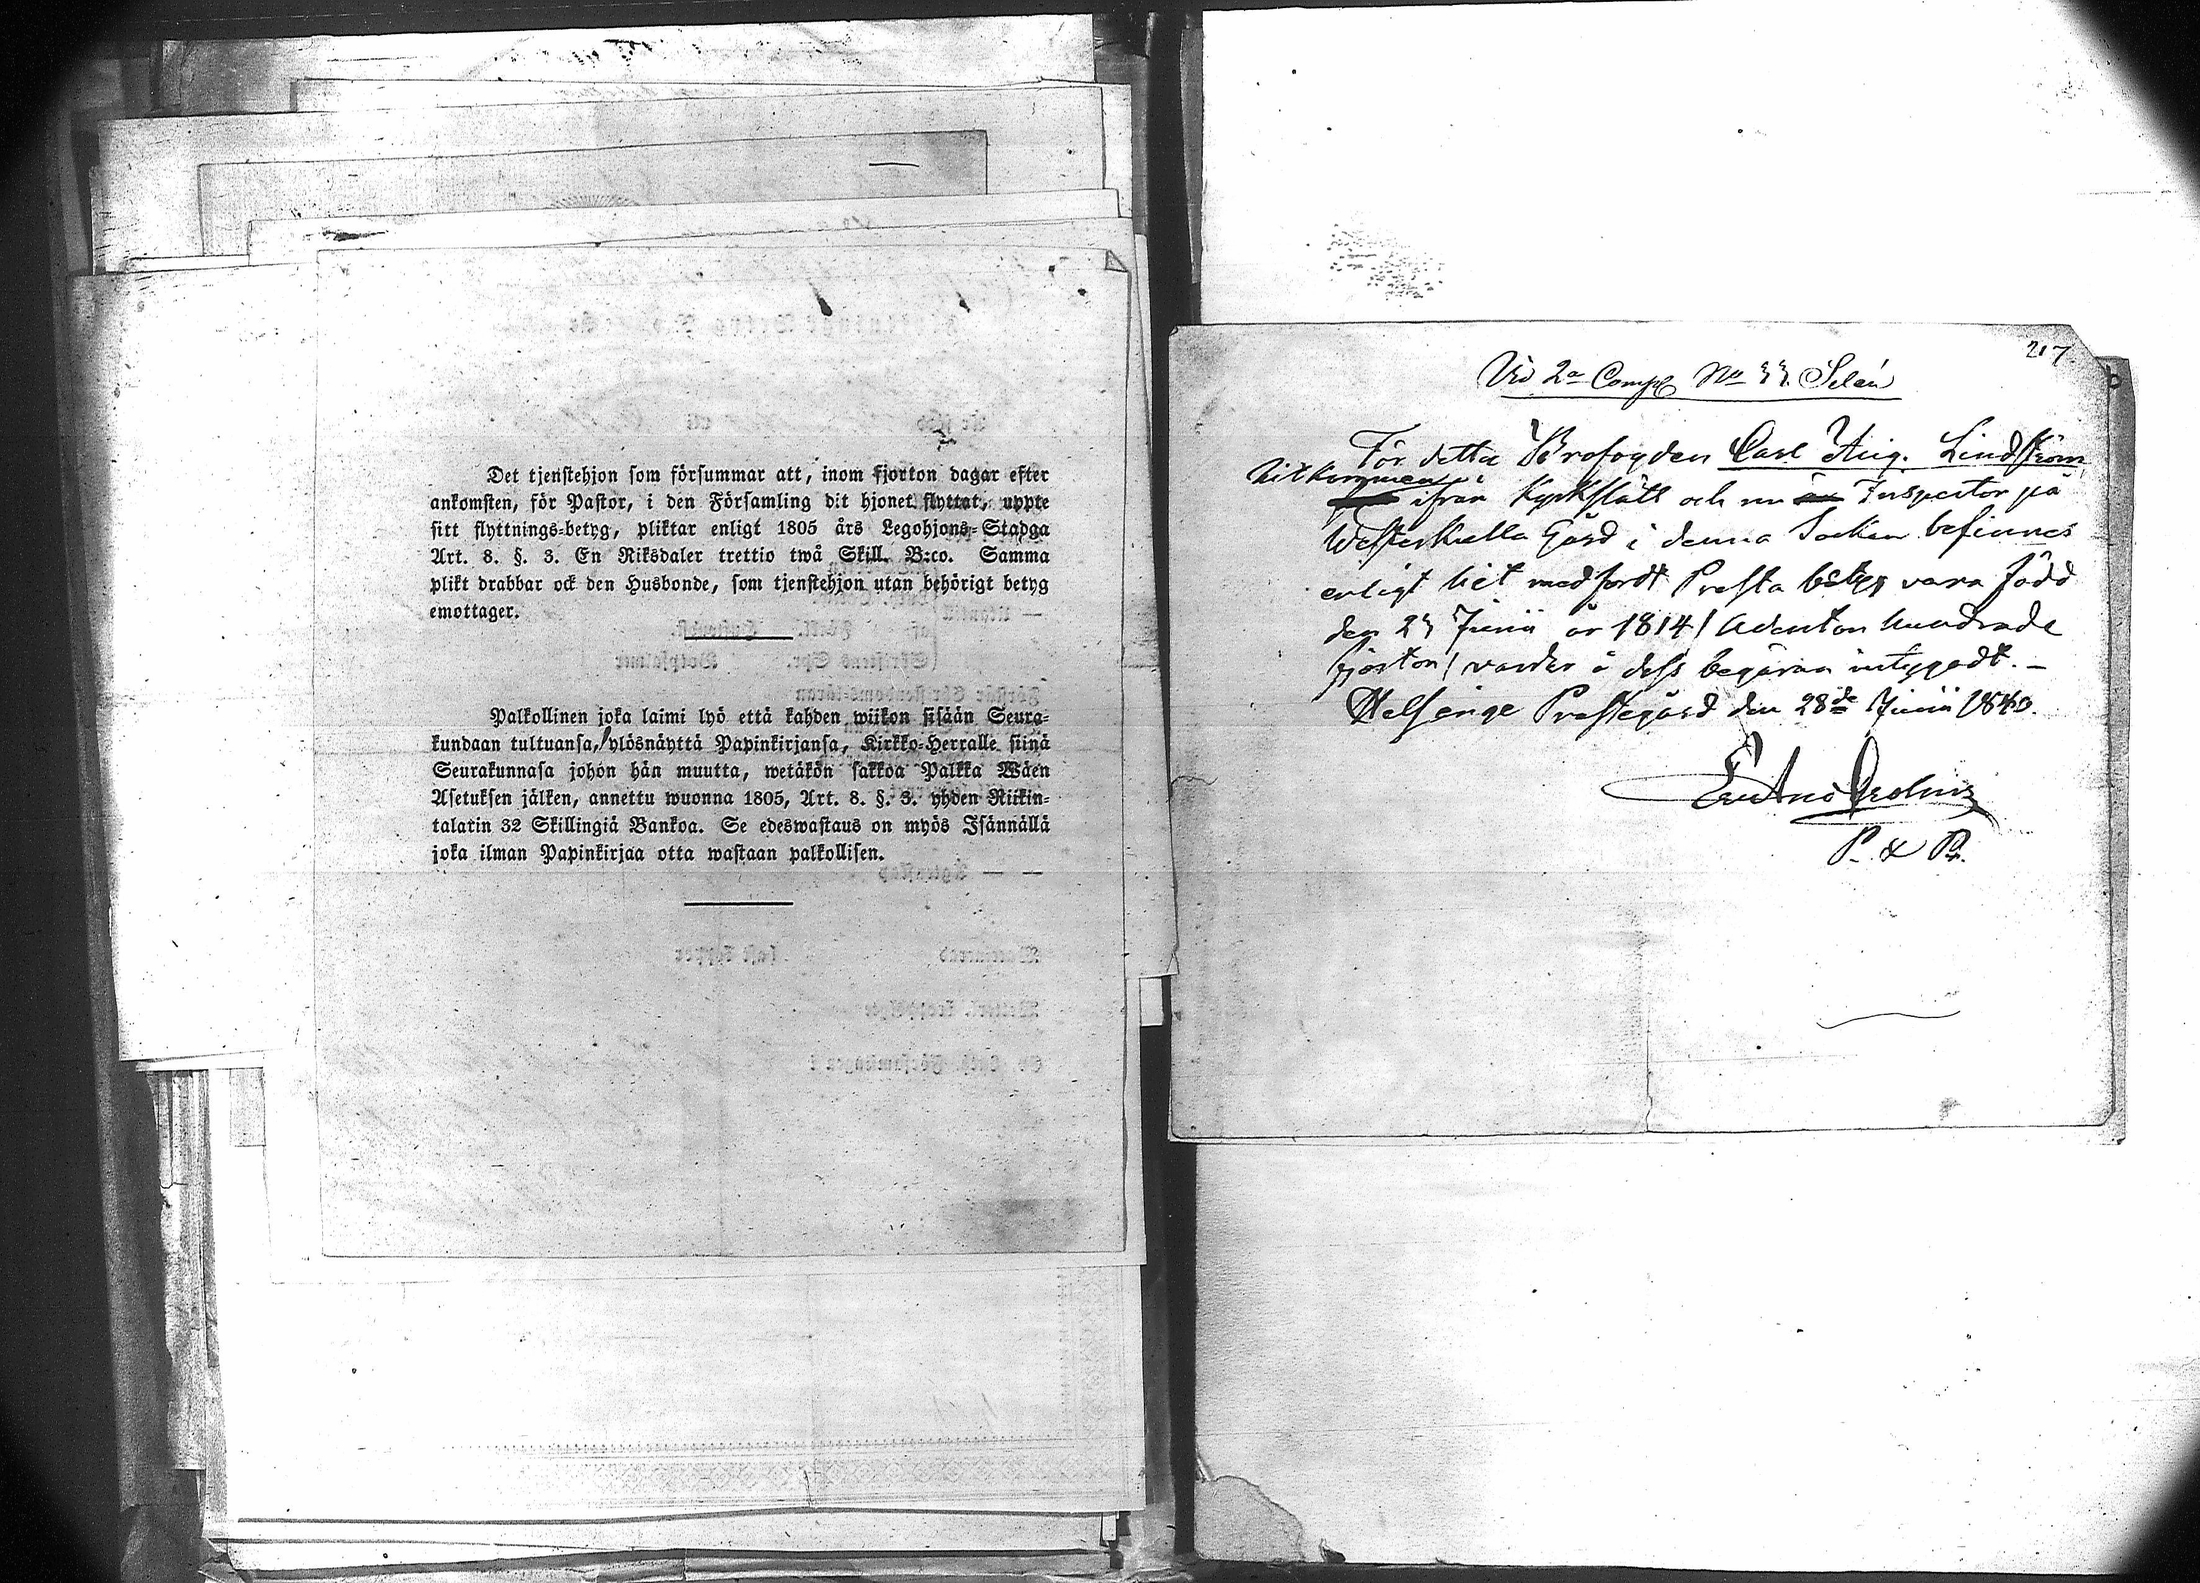 Det tjenstehjon som försummar att, inom fjorton dagar efter
ankomsten, för Pastor, i den Församling dit hjonet flyttat, uppte
sitt flyttnings-betyg, pliktar enligt 1805 års Legohjons-Stadga
Art. 8. §. 3. En Riksdaler trettio twå Skill. B:co. Samma
plikt drabbar ock den Husbonde, som tjenstehjon utan behörigt betyg
emottager.
Palkollinen joka laimi lyö että kahden wiikon sisään Seura-
kundaan tultuansa, ylösnäyttä Papinkirjansa, Kirkko-Herralle siinä
Seurakunnasa johon hän muutta, wetäkön sakkoa Palkka Wäen
Asetuksen jälken, annettu wuonna 1805, Art. 8. §. 3. yhden Riikin-
talarin 32 Skillingiä Bankoa. Se edeswastaus on myös Isännällä
joka ilman Papinkirjaa otta wastaan palkollisen.
217
Vid 2a Comp No 33. Selén
För detta Brofogden Carl Aug. Lindström
hitkommen
ifrån Kyrkslätt och nu Inspector på
Westerkulla Gård i denna Socken befinnes
enligt hit medfördt Presta betyg vara född
den 23 Junii år 1814 / Adenton hundrade
fjorton / varder å dess begäran intygadt. —
Helsinge Prestegård den 28de Junii 1840.
P. & P.